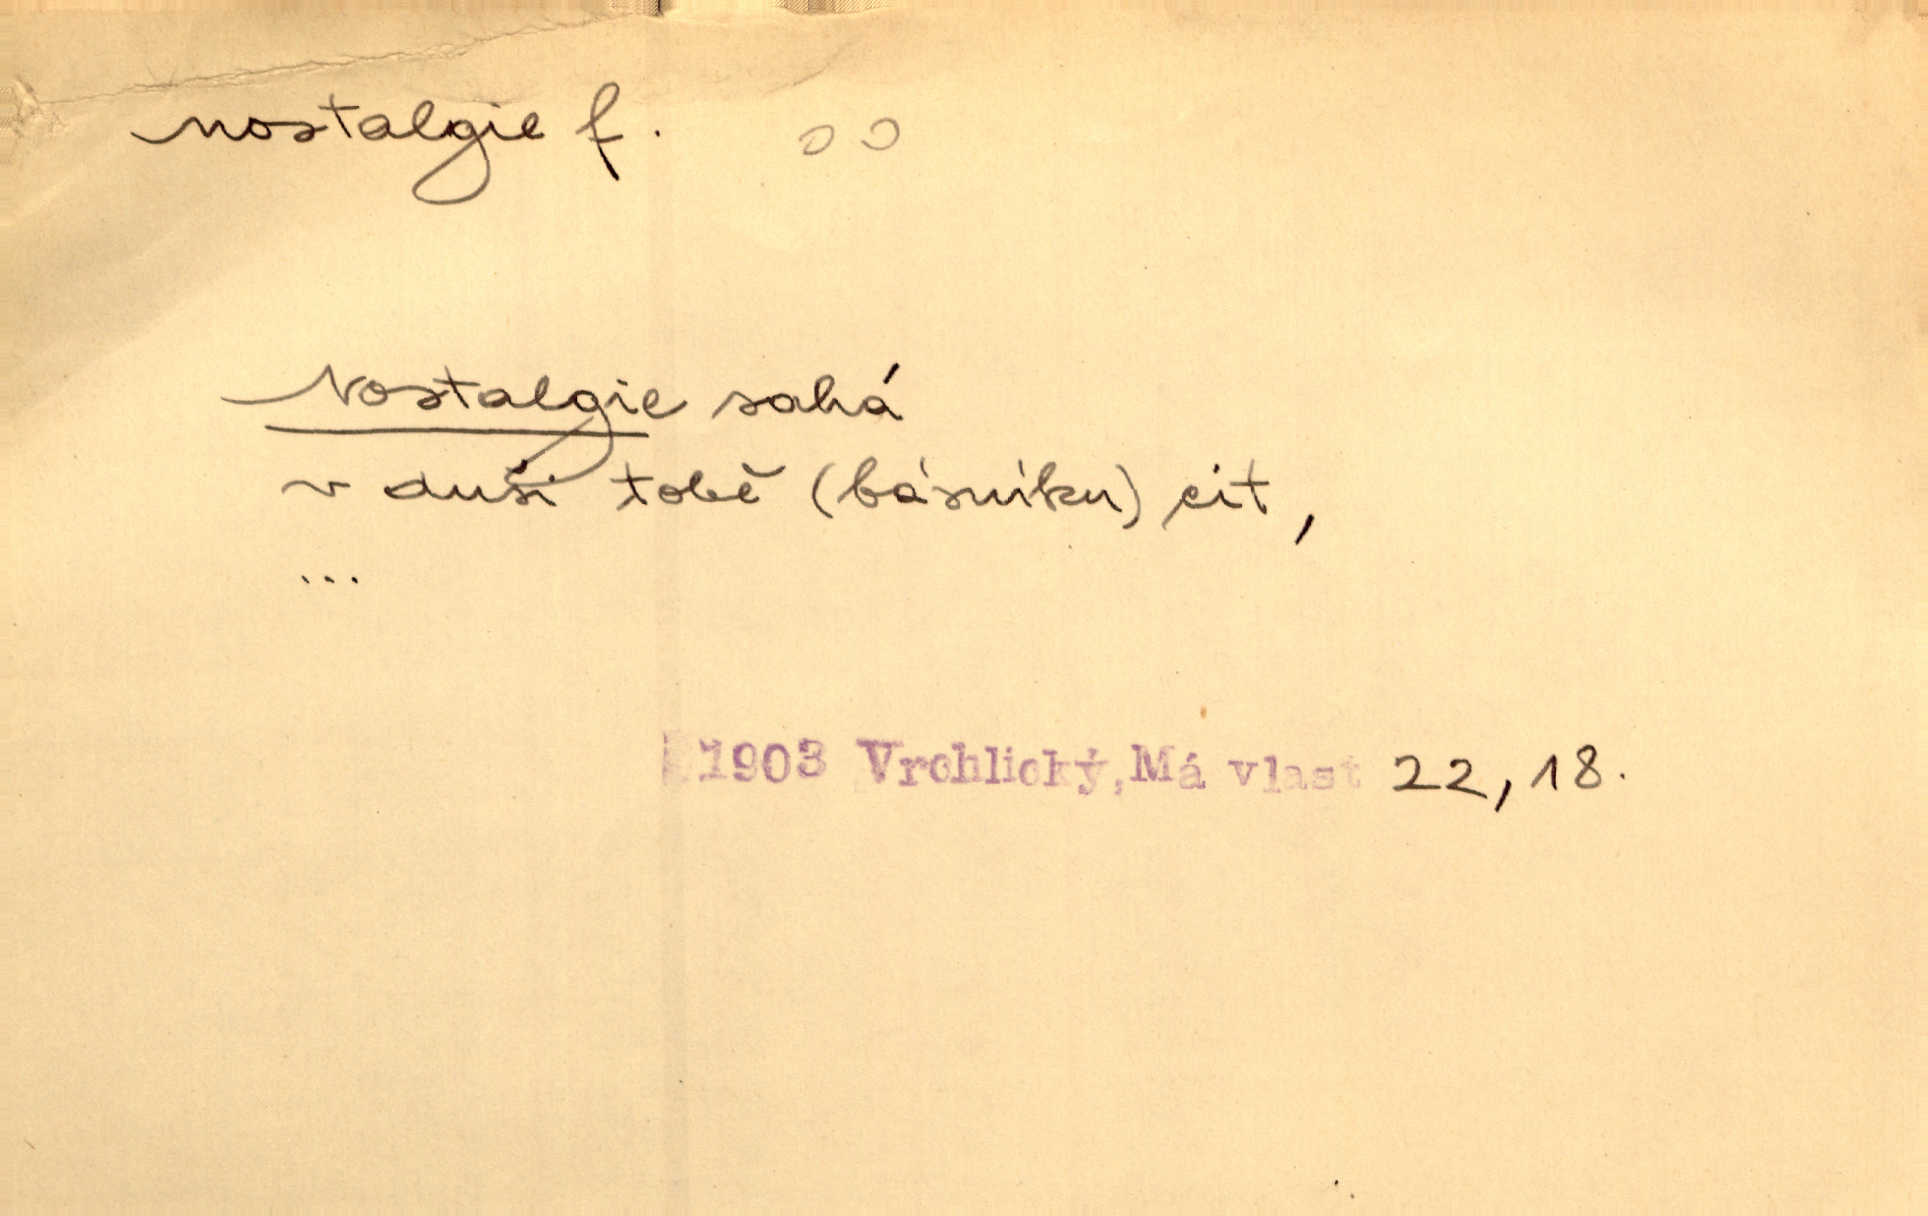 nostalgie f.
Nostalgie sahá
v duši tobě (básníku) cit,
...
1903 Vrchlický, Má vlast 22, 18.